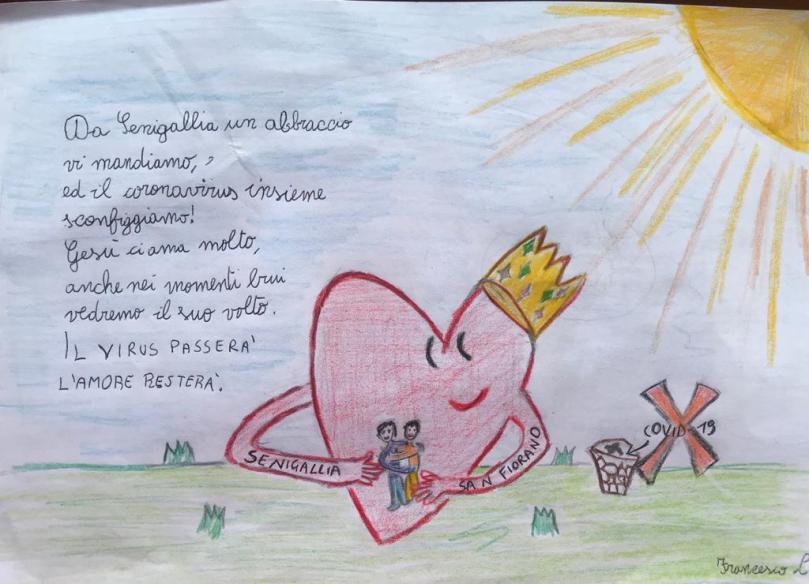 Da Senigallia un abbraccio
vi mandiamo,
ed il coronavirus insieme
sconfiggiamo!
Gesù ci ama molto,
anche nei momenti bui
vedremo il suo volto.
IL VIRUS PASSERA'
L'AMORE RESTERÀ.
SENIGALLIA
SAN FIORANO
COVID-19
Francesco L